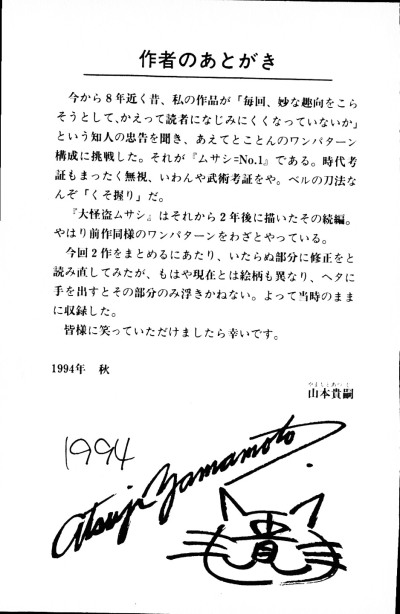 作者のあとがき
今から8年近く昔、私の作品が「毎回、妙な趣向をこら
そうとして、かえって読者になじみにくくなっていないか」
という知人の忠告を聞き、あえてとことんのワンパターン
構成に挑戦した。それが『ムサシ=No.1』である。時代考
証もまったく無視、いわんや武術考証をや。ベルの刀法な
んぞ「くそ握り」だ。
『大怪盗ムサシ』はそれから2年後に描いたその続編。
やはり前作同様のワンパターンをわざとやっている。
今回2作をまとめるにあたり、いたらぬ部分に修正をと
読み直してみたが、もはや現在とは絵柄も異なり、ヘタに
手を出すとその部分のみ浮きかねない。よって当時のまま
に収録した。
皆様に笑っていただけましたら幸いです。
1994年 秋
やまもとあつじ
山本貴嗣
1994
Atsuji Yamamoto
貴